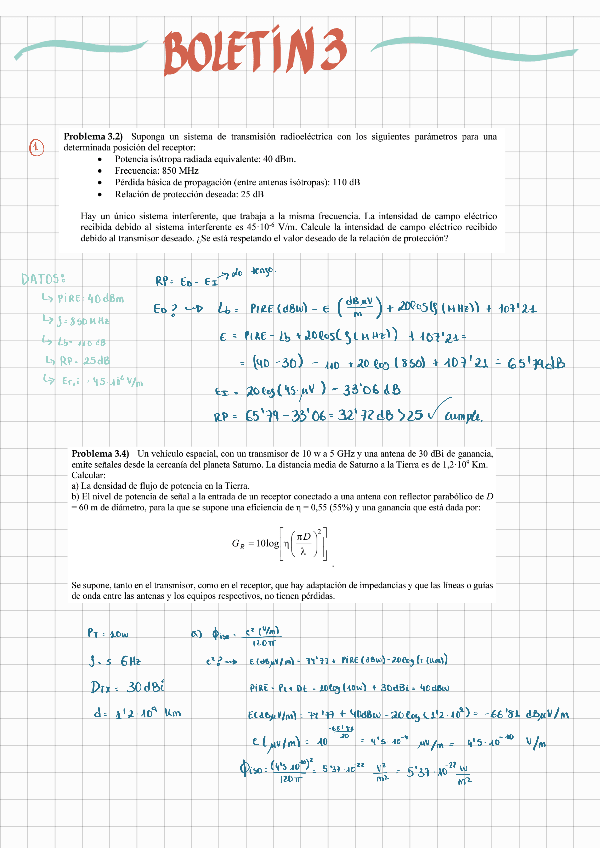 BOLETÍN 3
1
Problema 3.2) Suponga un sistema de transmisión radioeléctrica con los siguientes parámetros para una
determinada posición del receptor:
• Potencia isótropa radiada equivalente: 40 dBm.
• Frecuencia: 850 MHz
• Pérdida básica de propagación (entre antenas isótropas): 110 dB
• Relación de protección deseada: 25 dB
Hay un único sistema interferente, que trabaja a la misma frecuencia. La intensidad de campo eléctrico
recibida debido al sistema interferente es 45·10⁻⁶ V/m. Calcule la intensidad de campo eléctrico recibido
debido al transmisor deseado. ¿Se está respetando el valor deseado de la relación de protección?
DATOS:
↳ PIRE: 40dBm
↳ f = 850 MHz
↳ Lb = 110 dB
↳ RP = 25dB
↳ Er,i = 45·10⁻⁶ V/m
RP = ED - EI → no tengo.
ED? → Lb = PIRE (dBW) - E (dBμV/m) + 20log(f(MHz)) + 107'21
E = PIRE - Lb + 20log(f(MHz)) + 107'21 =
= (40 - 30) - 110 + 20 log (850) + 107'21 = 65'79dB
EI = 20log(45 μV) = 33'06 dB
RP = 65'79 - 33'06 = 32'72 dB > 25 ✓ cumple.
Problema 3.4) Un vehículo espacial, con un transmisor de 10 w a 5 GHz y una antena de 30 dBi de ganancia,
emite señales desde la cercanía del planeta Saturno. La distancia media de Saturno a la Tierra es de 1,2·10⁹ Km.
Calcular:
a) La densidad de flujo de potencia en la Tierra.
b) El nivel de potencia de señal a la entrada de un receptor conectado a una antena con reflector parabólico de D
= 60 m de diámetro, para la que se supone una eficiencia de η = 0,55 (55%) y una ganancia que está dada por:
G_R = 10log[η(πD/λ)²]
Se supone, tanto en el transmisor, como en el receptor, que hay adaptación de impedancias y que las líneas o guías
de onda entre las antenas y los equipos respectivos, no tienen pérdidas.
PT = 10W
f = 5 GHz
DTX = 30dBi
d = 1'2 10⁹ km
a) ϕiso = e² (V/m) / 120π
e²? → E (dBμV/m) = 74'77 + PIRE (dBW) - 20log(r(km))
PIRE = Pt + Dt = 10log(10W) + 30dBi = 40dBW
E(dBμV/m) = 74'77 + 40dBW - 20log(1'2·10⁹) = -66'81 dBμV/m
e(μV/m) = 10^(-66'81/20) = 4'5·10⁻⁴ μV/m = 4'5·10⁻¹⁰ V/m
ϕiso = (4'5·10⁻¹⁰)² / 120π = 5'37·10⁻²² V²/m² = 5'37·10⁻²² W/m²